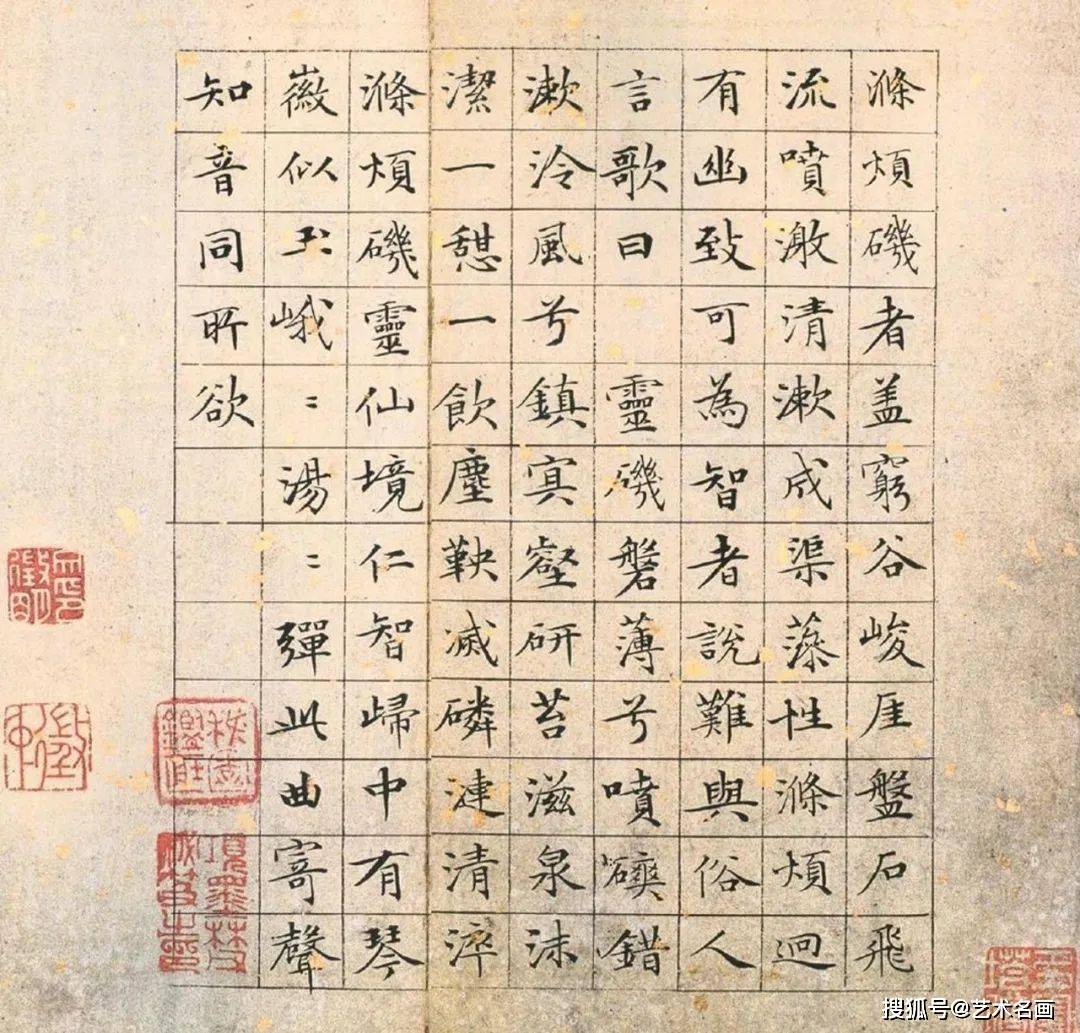 滌煩磯者盖窮谷峻厓盤石飛
流噴激清漱成渠藻性滌煩迴
有幽致可為智者說難與俗人
言歌曰 靈磯盤薄兮噴礇錯
漱泠風兮鎮寘壑研苔滋泉沫
潔一憇一飲塵鞅滅磷漣清淬
滌煩磯靈仙境仁智歸中有琴
徽似玉峨〻湯〻彈此曲寄聲
知音同所欲
搜狐号@艺术名画